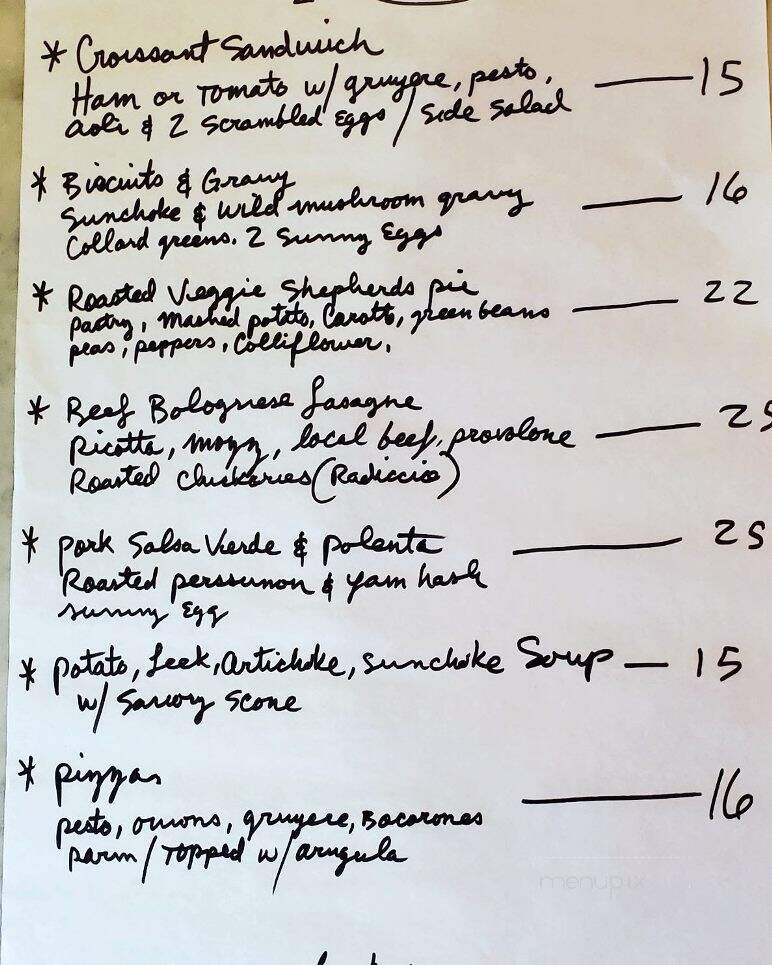 * Croissant Sandwich
Ham or Tomato w/ gruyere, pesto, — 15
aoli & 2 Scrambled Eggs / Side Salad
* Biscuits & Gravy
Sunchoke & Wild mushroom gravy — 16
Collard greens. 2 Sunny Eggs
* Roasted Veggie Shepherds pie
pastry, mashed potato, Carotts, green beans — 22
peas, peppers, Colliflower.
* Beef Bolognese Lasagne
Ricotta, mozz, local beef, provolone — 25
Roasted (Radiccio)
* Pork Salsa Vierde & Polenta — 25
Roasted perssimon & yam hash
sunny Egg
* Potato, Leek, Artichoke, Sunchoke Soup — 15
w/ Savory Scone
* Pizzas
pesto, onions, gruyere, — 16
parm / Topped w/ arugula
menupix